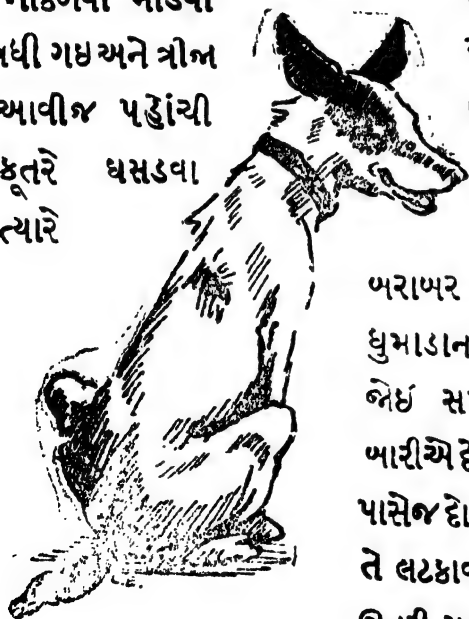 વધી ગઇ અને ત્રીજા
આવીજ પહોંચી
કૂતરે ઘસડવા
ત્યારે
બરાબર
ધુમાડાન
જોઇ સ
બારીએ દો
પાસેજ દો
તે લટકાવ